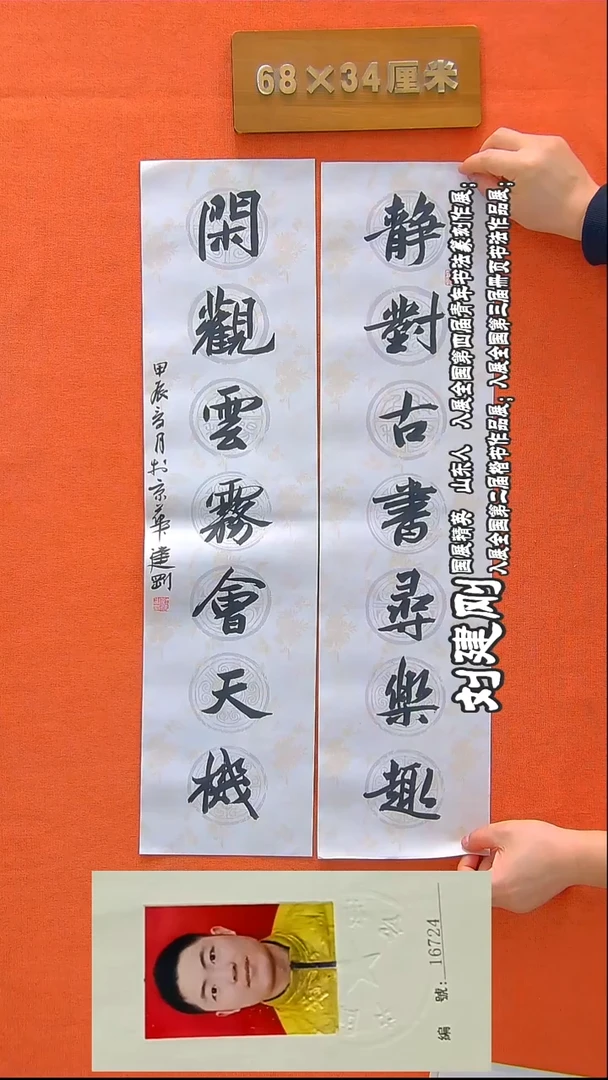 68×34厘米
静對古書尋樂趣
閑觀雲霧會天機
甲辰月於京華建剛
刘建刚
国展精英 山东人 入展全国第四届青年书法篆刻作展；
入展全国第二届楷书作品展；入展全国第三届册页书法作品展；
編 號：16724